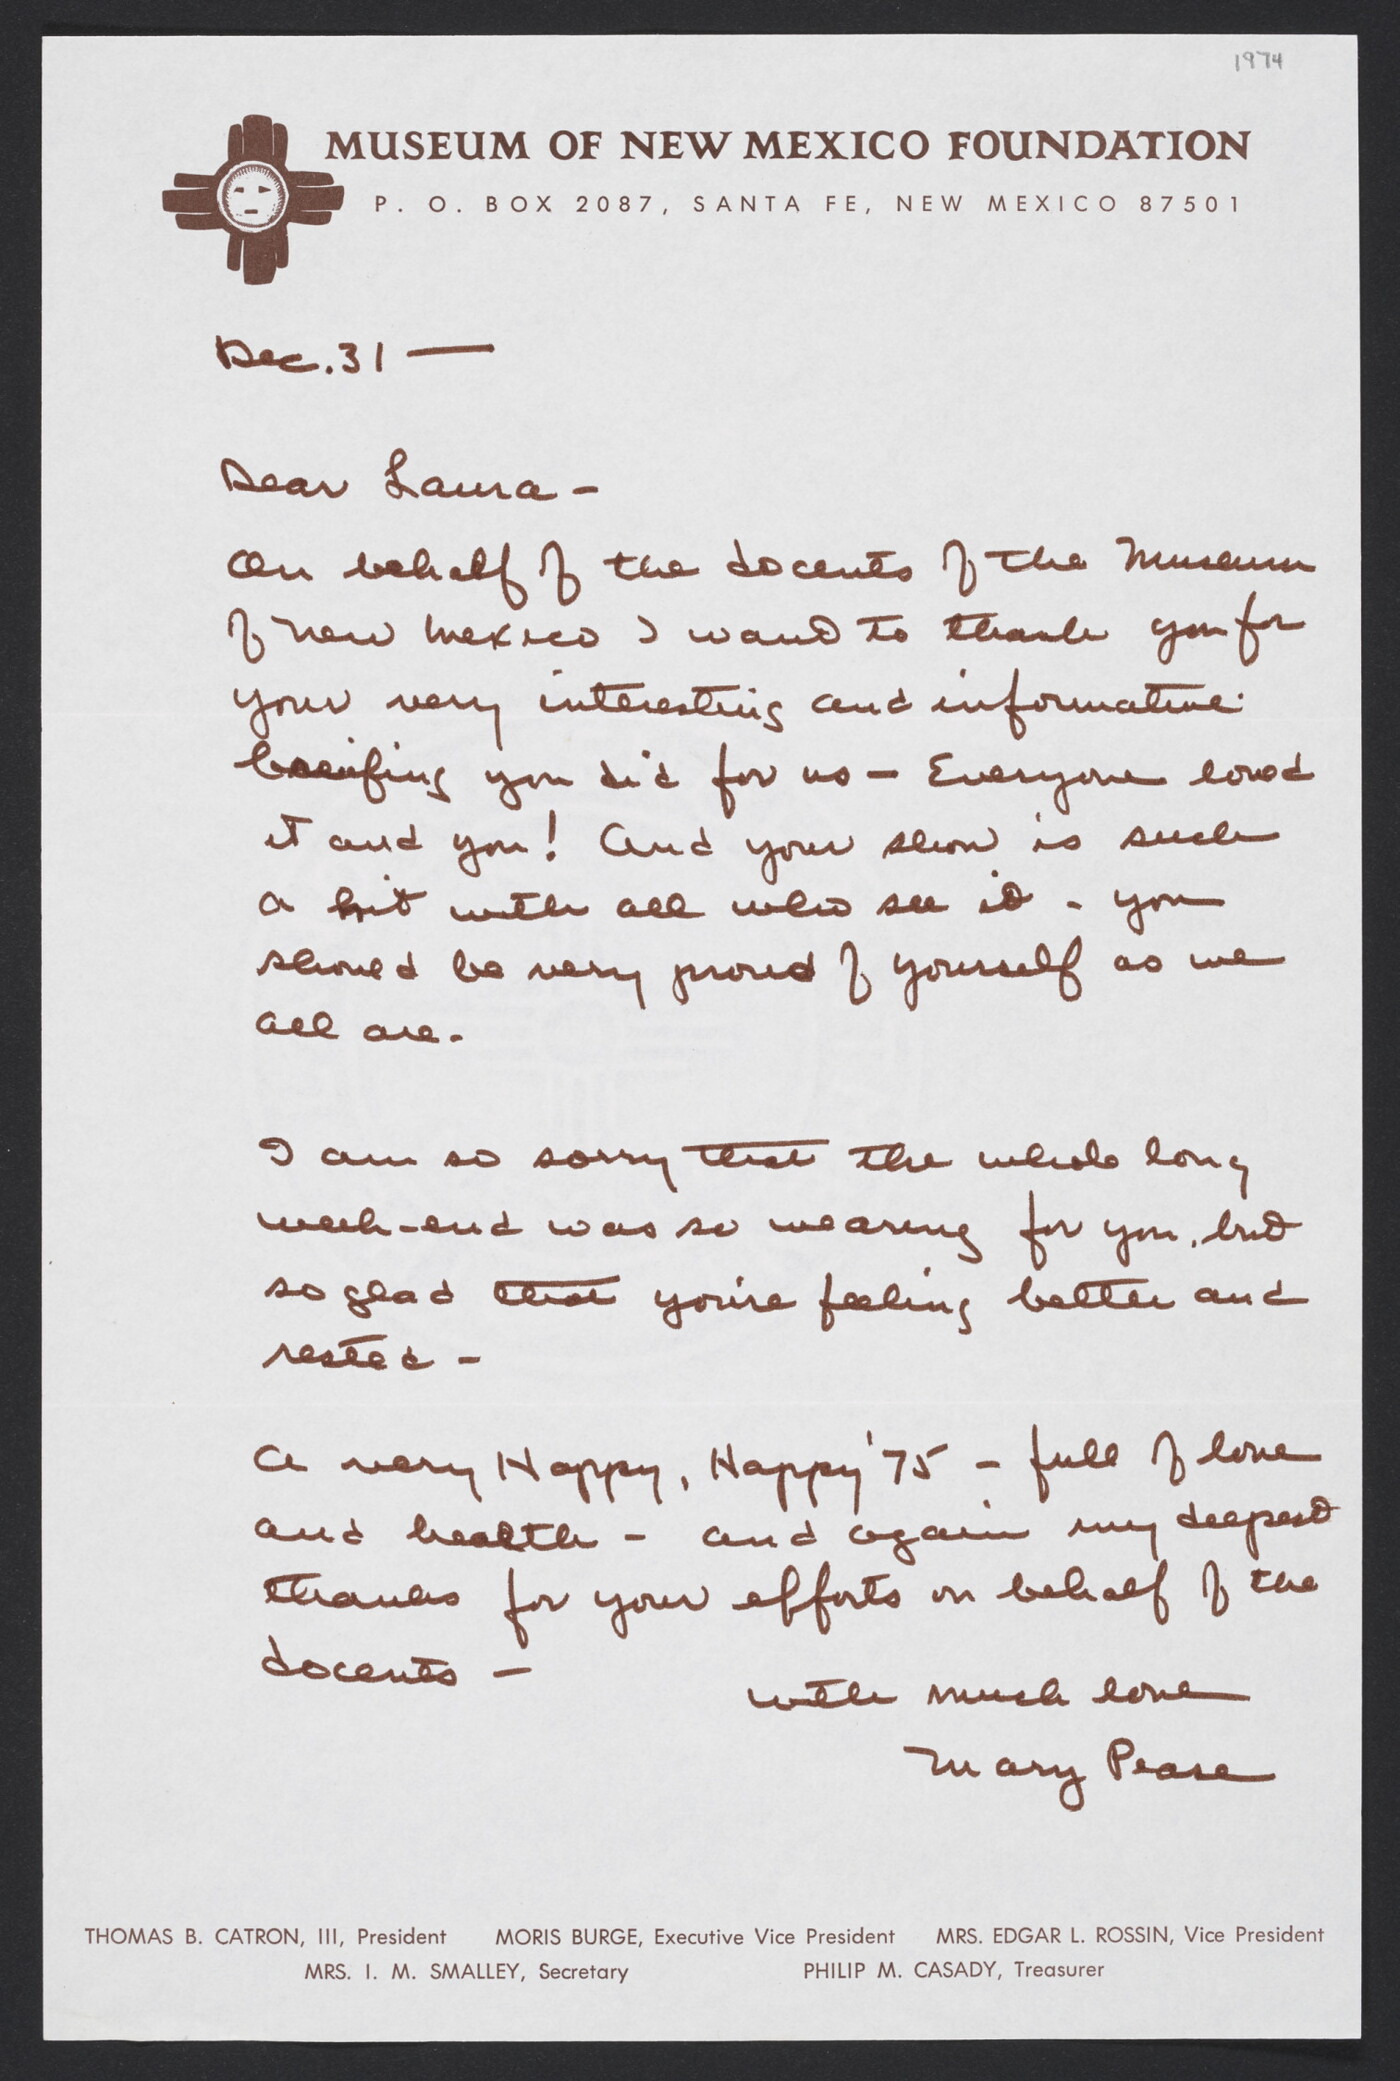 1974
MUSEUM OF NEW MEXICO FOUNDATION
P. O. BOX 2087, SANTA FE, NEW MEXICO 87501
Dec. 31 —
Dear Laura -
On behalf of the docents of the Museum
of New Mexico I want to thank you for
your very interesting and informative
briefing you did for us - Everyone loved
it and you! And your show is such
a hit with all who see it - you
should be very proud of yourself as we
all are.
I am so sorry that the whole long
week-end was so wearing for you, but
so glad that you're feeling better and
rested -
A very Happy, Happy '75 - full of love
and health - and again my deepest
thanks for your efforts on behalf of the
docents -
with much love
Mary Pease
THOMAS B. CATRON, III, President MORIS BURGE, Executive Vice President MRS. EDGAR L. ROSSIN, Vice President
MRS. I. M. SMALLEY, Secretary PHILIP M. CASADY, Treasurer